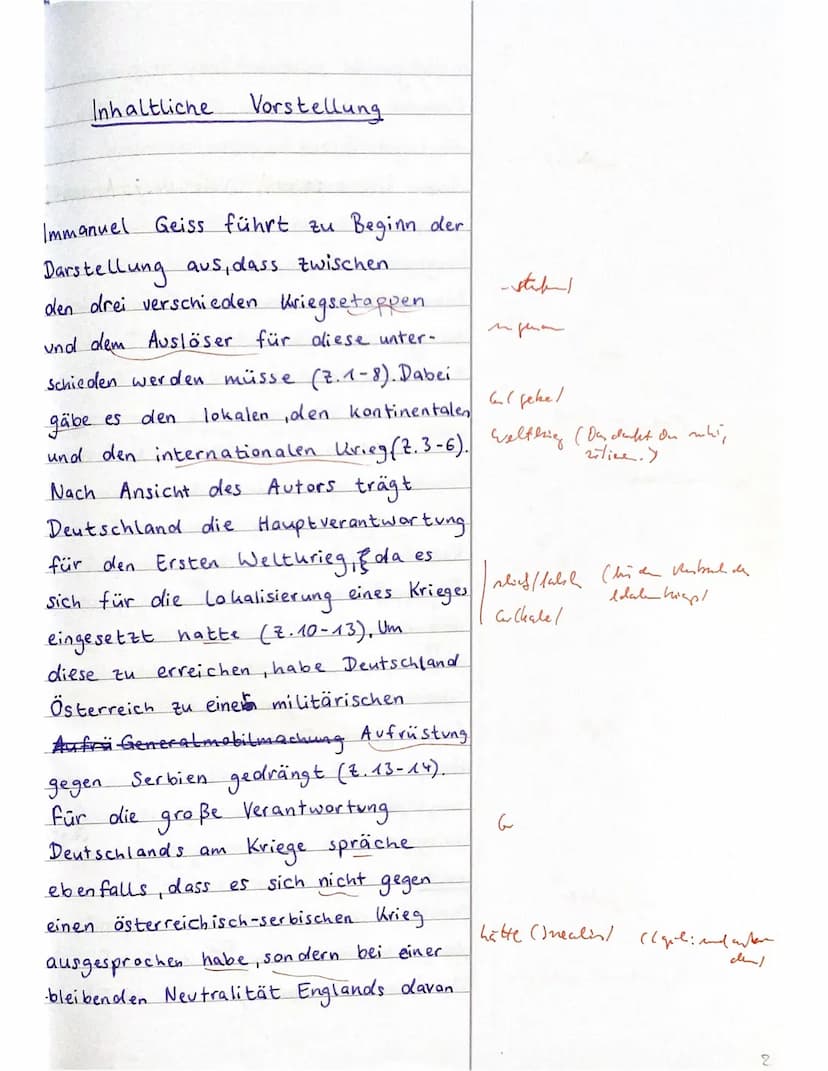 Inhaltliche Vorstellung
Immanuel Geiss führt zu Beginn der
Darstellung aus, dass zwischen
den drei verschieden Kriegsetappen
und dem Auslöser für diese unter-
schieden werden müsse (Z.1-8). Dabei
gäbe es den lokalen, den kontinentalen
und den internationalen Krieg (Z.3-6).
Nach Ansicht des Autors trägt
Deutschland die Hauptverantwortung
für den Ersten Weltkrieg, da es
sich für die Lokalisierung eines Krieges
eingesetzt hatte (Z.10-13). Um
diese zu erreichen, habe Deutschland
Österreich zu einer militärischen
Aufrü Generalmobilmachung Aufrüstung
gegen Serbien gedrängt (Z.13-14).
Für die große Verantwortung
Deutschlands am Kriege spräche
ebenfalls, dass es sich nicht gegen
einen österreichisch-serbischen Krieg
ausgesprochen habe, sondern bei einer
bleibenden Neutralität Englands davon
Weltkrieg
G
hätte
2